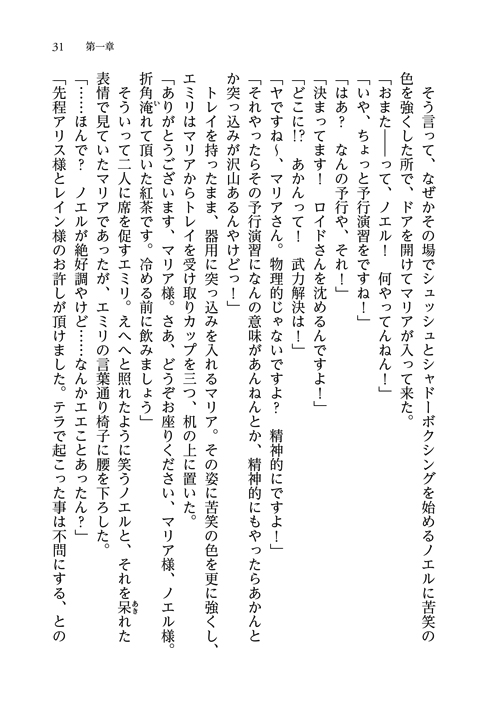 31　第一章
　そう言って、なぜかその場でシュッシュとシャドーボクシングを始めるノエルに苦笑の
色を強くした所で、ドアを開けてマリアが入って来た。
「おまた――って、ノエル！　何やってんねん！」
「いや、ちょっと予行演習をですね！」
「はあ？　なんの予行や、それ！」
「決まってます！　ロイドさんを沈めるんですよ！」
「どこに!?　あかんって！　武力解決は！」
「ヤですね～、マリアさん。物理的じゃないですよ？　精神的にですよ！」
「それやったらその予行演習になんの意味があんねんとか、精神的にもやったらあかんと
か突っ込みが沢山あるんやけどっ！」
　トレイを持ったまま、器用に突っ込みを入れるマリア。その姿に苦笑の色を更に強くし、
エミリはマリアからトレイを受け取りカップを三つ、机の上に置いた。
「ありがとうございます、マリア様。さあ、どうぞお座りください、マリア様、ノエル様。
折角淹れて頂いた紅茶です。冷める前に飲みましょう」
　そういって二人に席を促すエミリ。えへへと照れたように笑うノエルと、それを呆れた
表情で見ていたマリアであったが、エミリの言葉通り椅子に腰を下ろした。
「……ほんで？　ノエルが絶好調やけど……なんかエエことあったん？」
「先程アリス様とレイン様のお許しが頂けました。テラで起こった事は不問にする、との